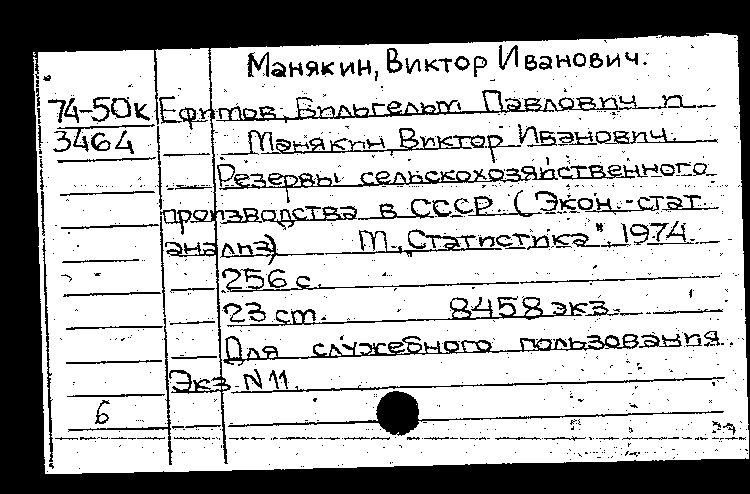 Манякин, Виктор Иванович.
74-50к Ефимов, Вильгельм Павлович и
3464 Манякин, Виктор Иванович.
Резервы сельскохозяйственного
производства в СССР. (Экон.-стат.
анализ) М., „Статистика", 1974.
256 с.
23 см. 8458 экз.
Для служебного пользования.
Экз. N 11.
6